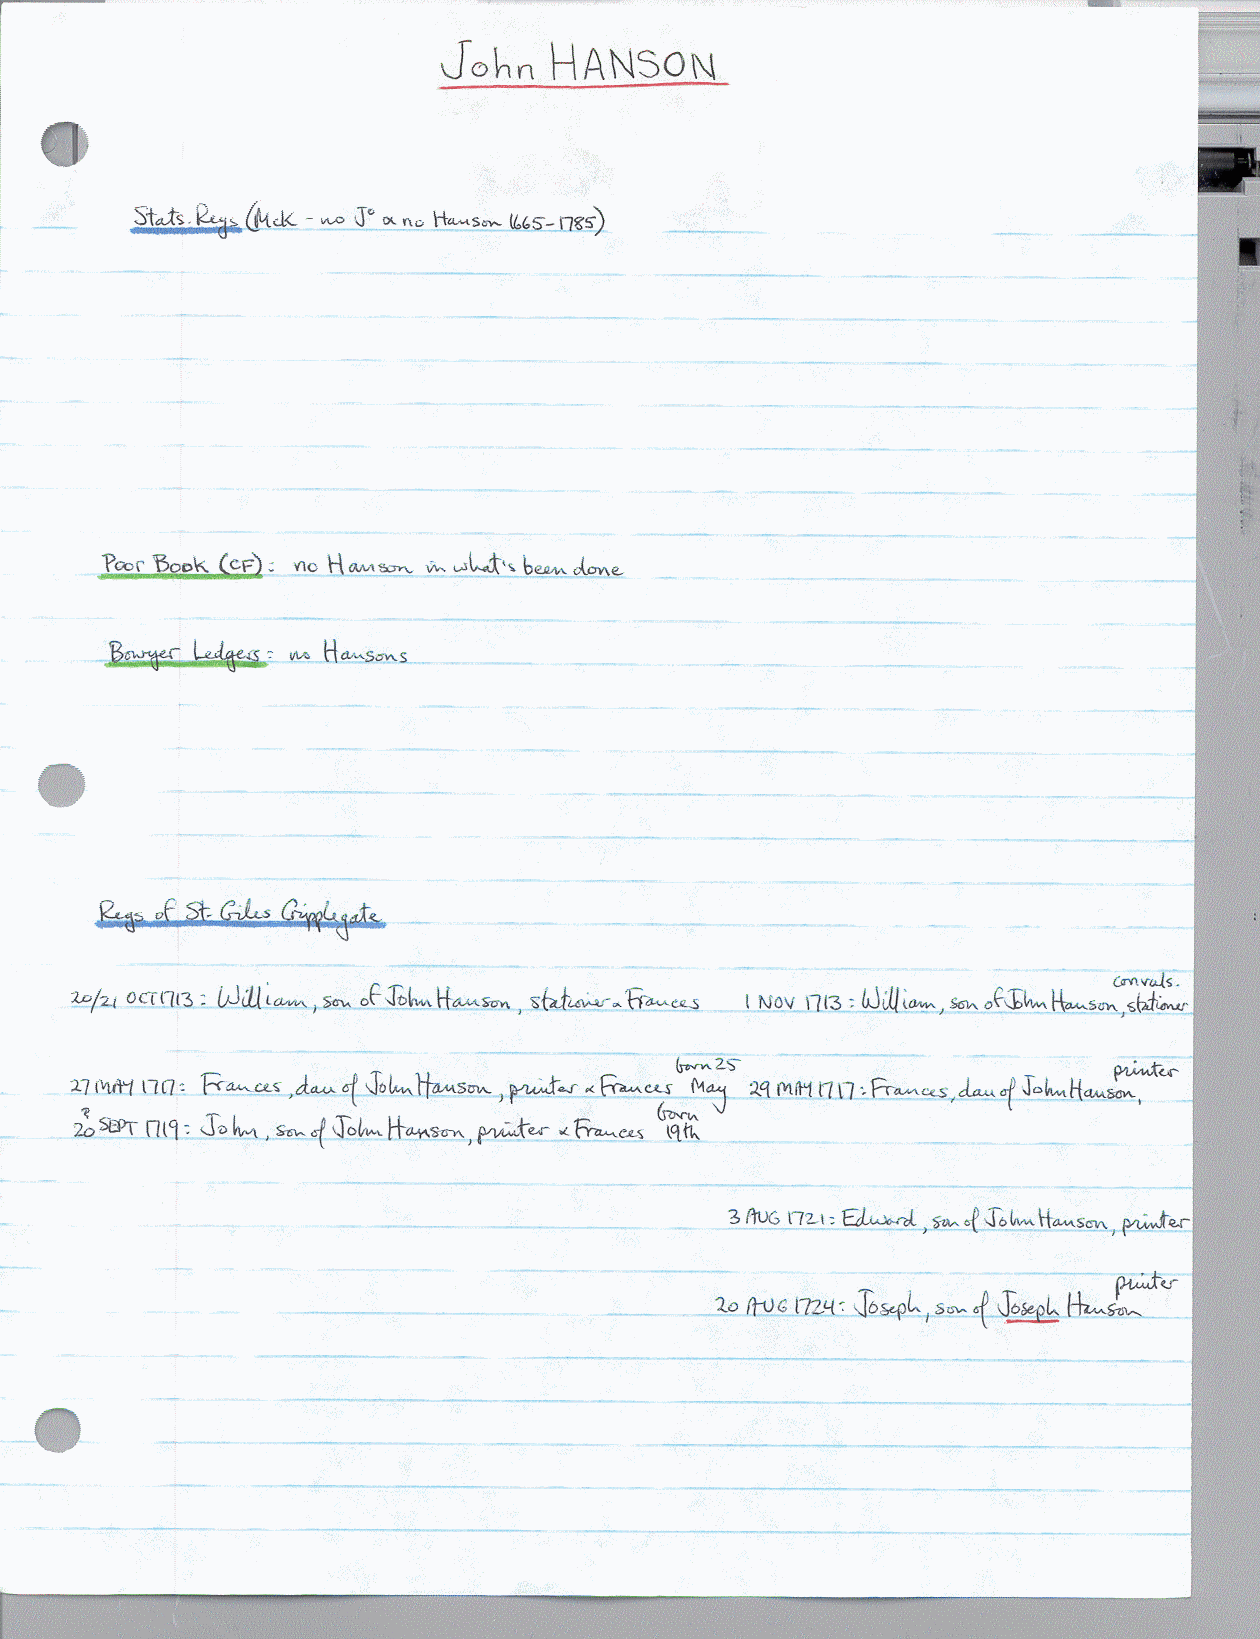 John HANSON
Stats. Regs (McK - no J° & no Hanson 1665-1785)
Poor Book (CF): no Hanson in what's been done
Bowyer Ledgers: no Hansons
Regs of St. Giles Cripplegate
convuls.
20/21 OCT 1713: William, son of John Hanson, stationer & Frances 1 NOV 1713: William, son of John Hanson, stationer
born 25 printer
27 MAY 1717: Frances, dau of John Hanson, printer & Frances May 29 MAY 1717: Frances, dau of John Hanson,
? born
20 SEPT 1719: John, son of John Hanson, printer & Frances 19th
3 AUG 1721: Edward, son of John Hanson, printer
printer
20 AUG 1724: Joseph, son of Joseph Hanson